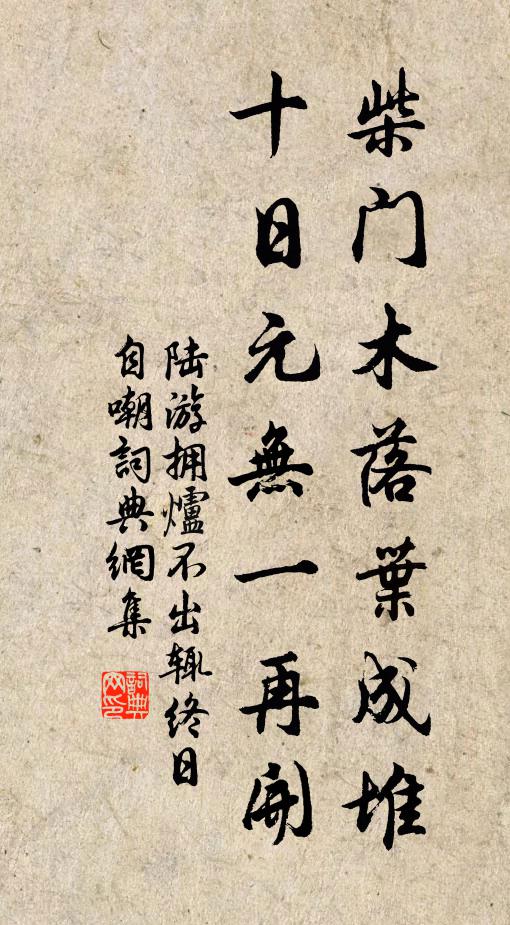 柴门木落葉成堆
十日元無一再開
陆游拥爐不出辄终日
自嘲詞典網集
詞典网印